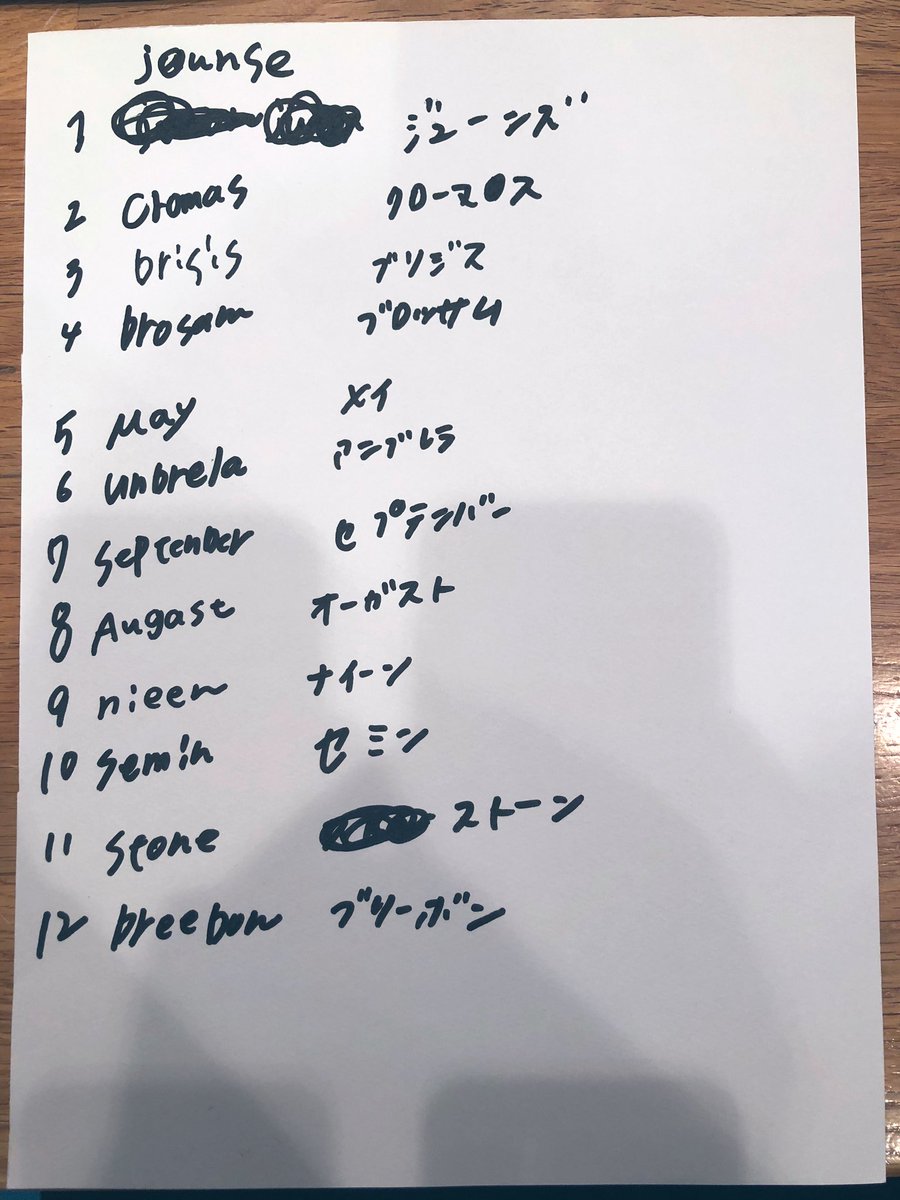 jounse
1 ジューンズ
2 cromas クロースス
3 brisis ブリジス
4 brosam ブロッサム
5 May メイ
6 unbrela アンブレラ
7 september セプテンバー
8 Augast オーガスト
9 nieen ナイーン
10 semin セミン
11 stone ストーン
12 breebon ブリーボン